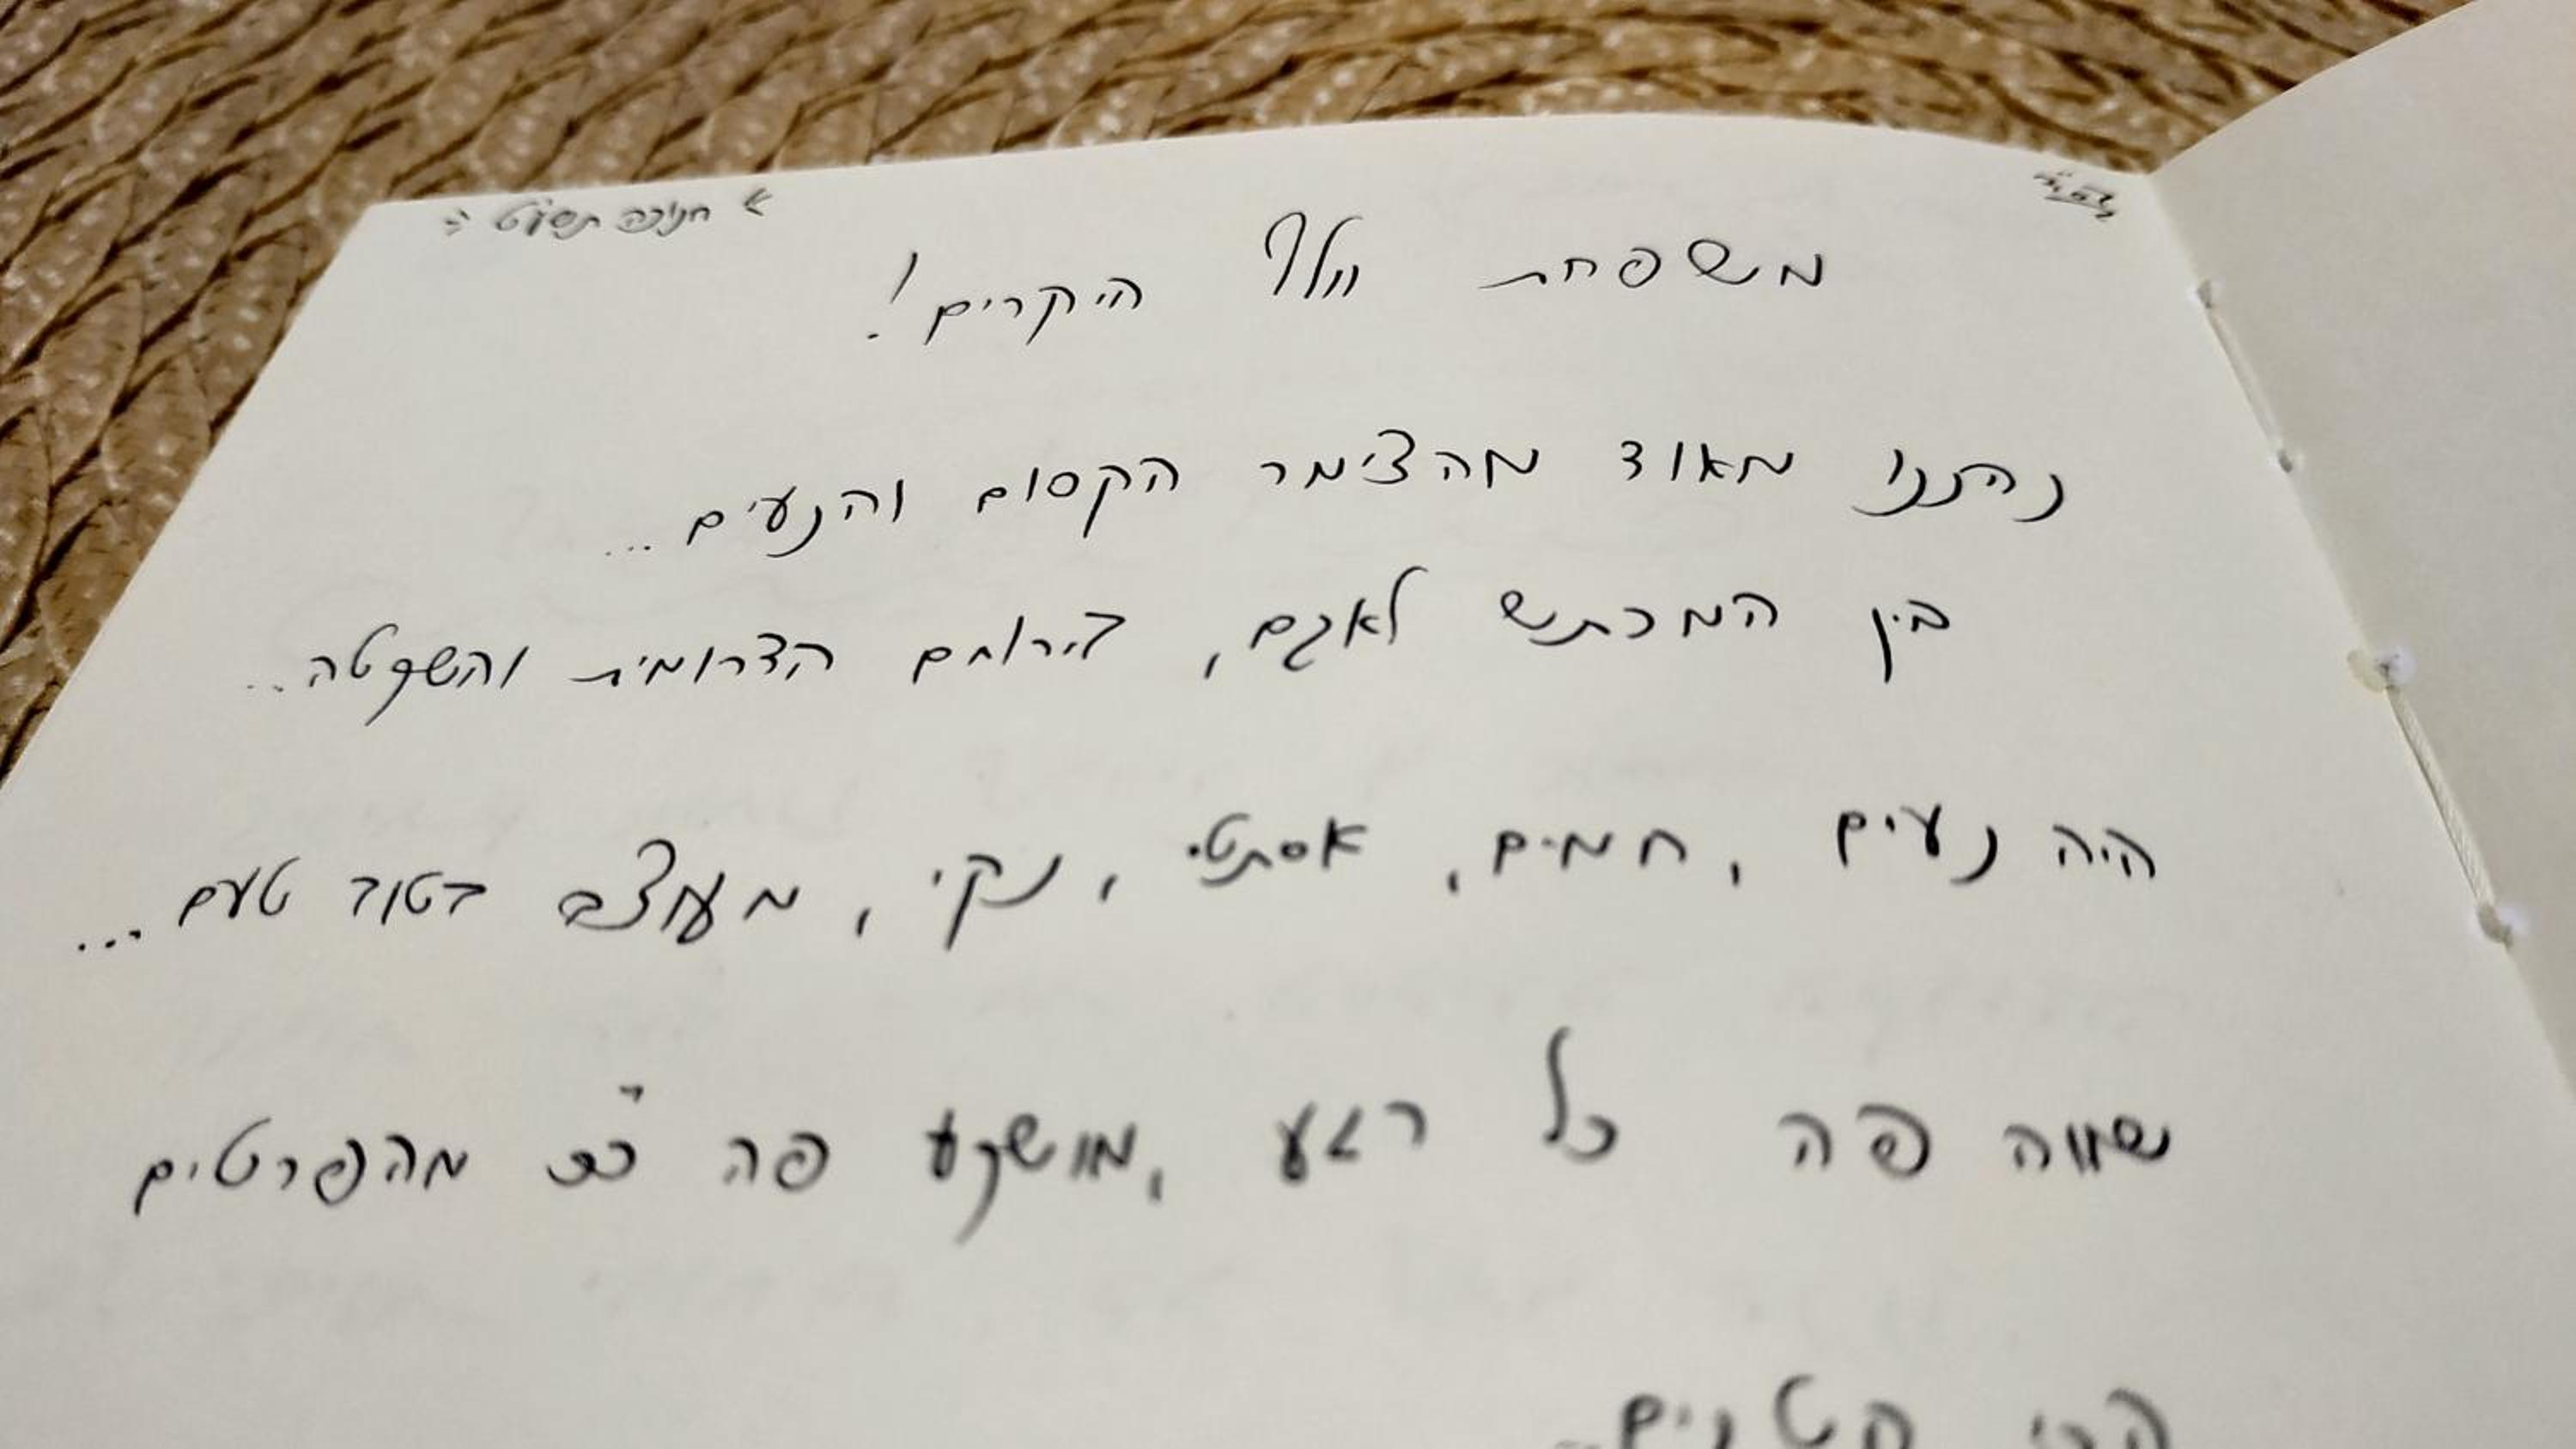 חנוכה תשע"ט
משפחת וולף היקרים!
נהננו מאוד מהצימר הקסום והנעים...
בין המכתש לאגם, בירוחם הדרומית והשקטה...
היה נעים, חמים, אסתטי, נקי, מעוצב בטוב טעם...
שווה פה כל רגע, מושקע פה מהפרטים
הכי קטנים